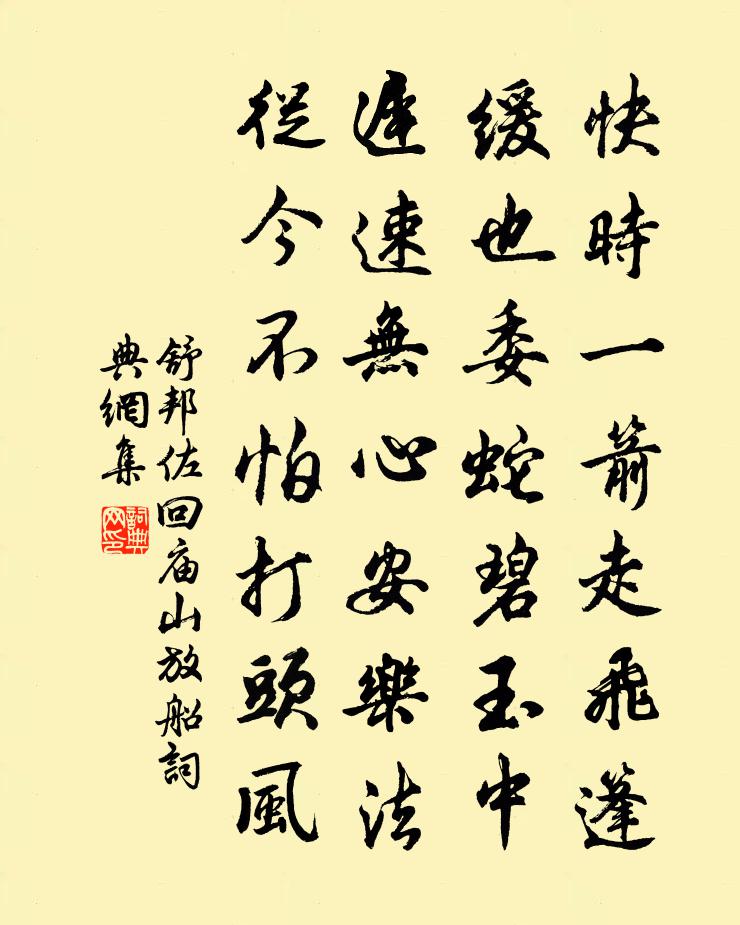 快時一箭走飛蓬
緩也委蛇碧玉中
遲速無心安樂法
從今不怕打頭風
舒邦佐回庙山放船詞
典網集
詞典
网印